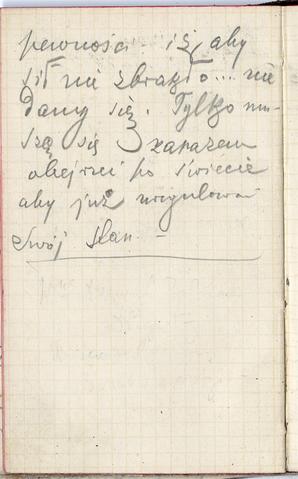 pewności iż, aby
sił nie zbrakło... nie
damy się. Tylko mu-
szę się zarazem
obejrzeć po świecie
aby już uregulować
swój stan. –